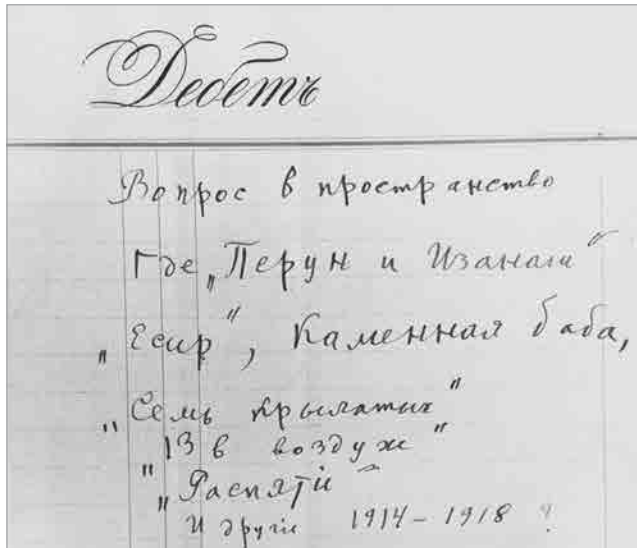 Дебетъ
Вопрос в пространство
Где „Перун и Изанаги"
„Есир", Каменная баба,
„Семь крылатых"
„13 в воздух"
„Распятій"
И другіе 1914 – 1918 ?